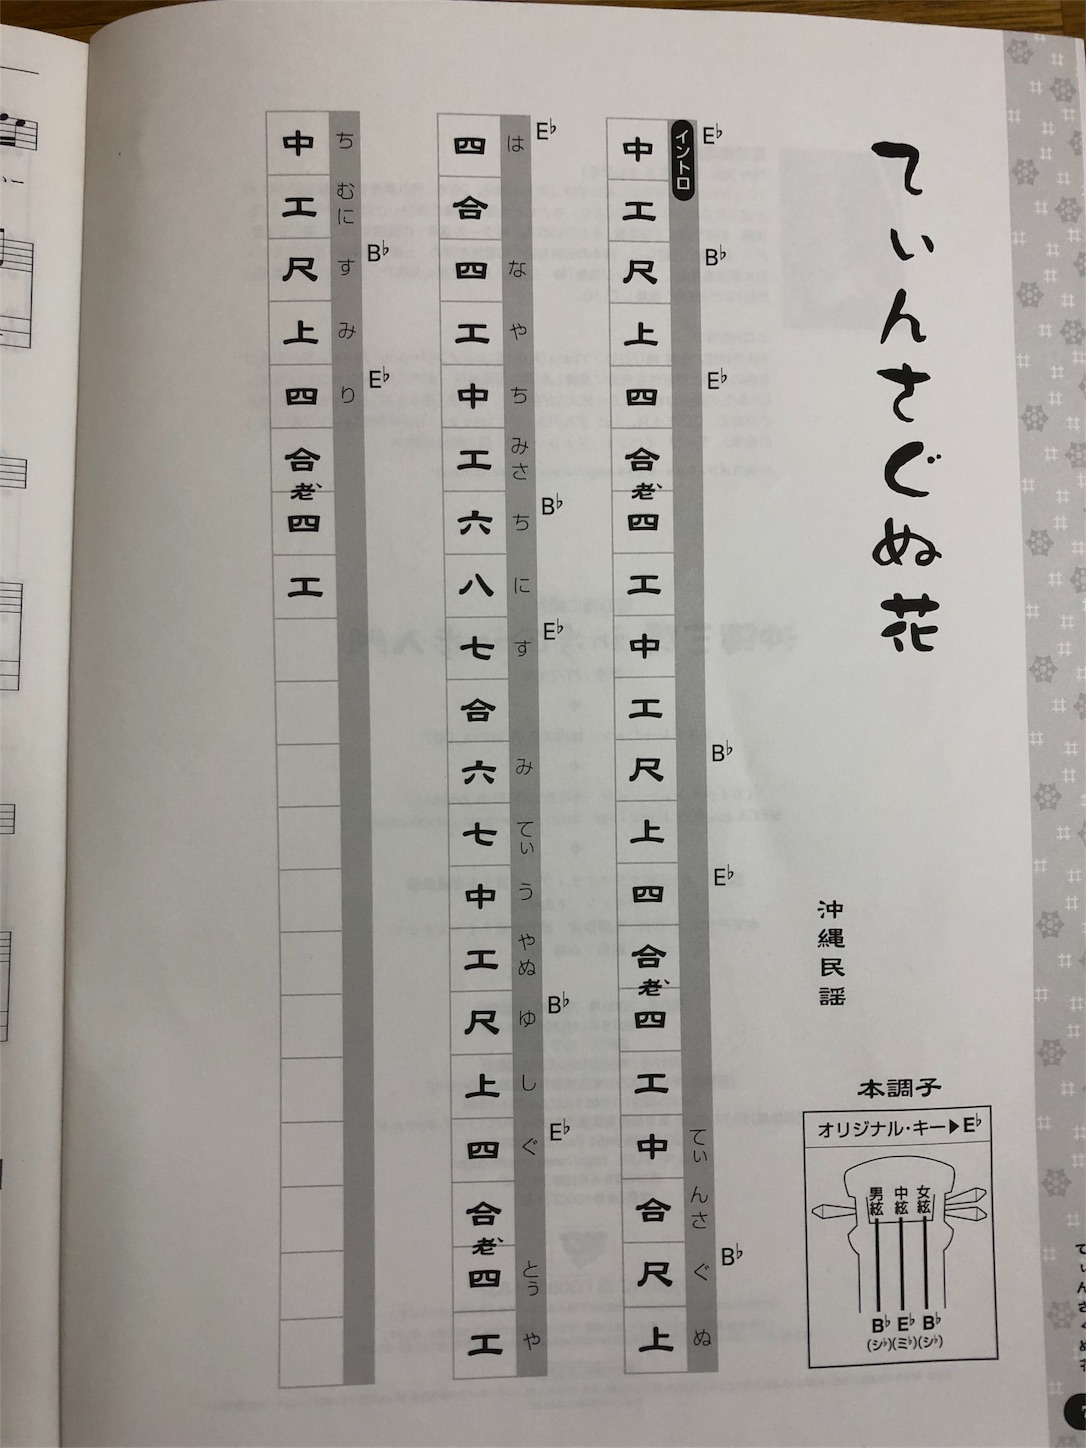 てぃんさぐぬ花
沖縄民謡
本調子
オリジナル・キー▶E♭
男絃 中絃 女絃
B♭ E♭ B♭
(シ♭)(ミ♭)(シ♭)
イントロ
E♭ B♭ E♭ B♭ E♭ B♭
中工尺上四合老四工中工尺上四合老四工中合尺上
てぃ んさ ぐ ぬ
E♭ B♭ E♭ B♭ E♭
は な や ち みさ ち に す み てぃ う やぬ ゆ し ぐ とぅ や
四合四工中工六八七合六七中工尺上四合老四工
B♭ E♭
ち むに す み り
中工尺上四合老四工
てぃんさぐぬ花